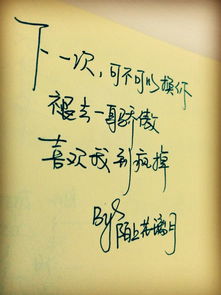 下一次，可不可以换你
褪去一身骄傲
喜欢我到疯掉
By：陌上若离月